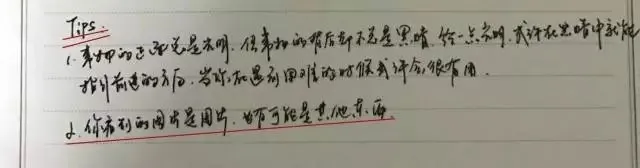 Tips.
1. 事物的正面总是光明，但事物的背后却不总是黑暗，给一点光明，或许在黑暗中就能
指引前进的方向，当你在遇到困难的时候或许会很有用。
2. 你看到的图片是图片，也有可能是其他东西。